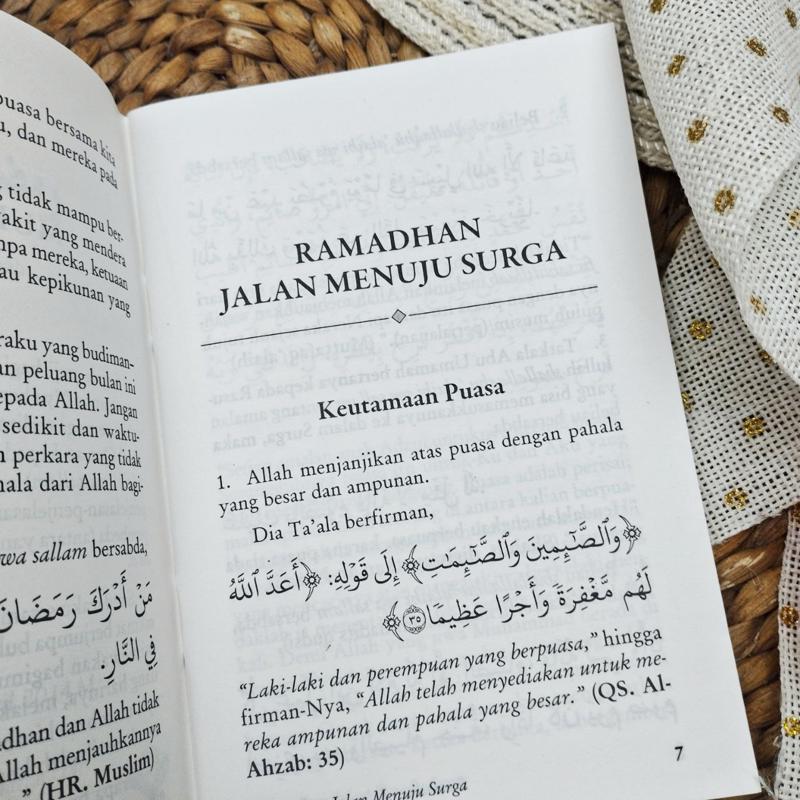 puasa bersama kita
u, dan mereka pada
g tidak mampu ber-
yakit yang mendera
npa mereka, ketuaan
au kepikunan yang
raku yang budiman-
an peluang bulan ini
epada Allah. Jangan
sedikit dan waktu-
n perkara yang tidak
hala dari Allah bagi-
wa sallam bersabda,
مَنْ أَدْرَكَ رَمَضَانَ
فِي النَّارِ.
dhan dan Allah tidak
Allah menjauhkannya
" (HR. Muslim)
RAMADHAN
JALAN MENUJU SURGA
Keutamaan Puasa
1. Allah menjanjikan atas puasa dengan pahala
yang besar dan ampunan.
Dia Ta'ala berfirman,
﴿وَٱلصَّـٰٓئِمِينَ وَٱلصَّـٰٓئِمَـٰتِ﴾ إِلَى قَوْلِهِ: ﴿أَعَدَّ ٱللَّهُ
لَهُم مَّغْفِرَةً وَأَجْرًا عَظِيمًا ٣٥﴾
"Laki-laki dan perempuan yang berpuasa," hingga
firman-Nya, "Allah telah menyediakan untuk me-
reka ampunan dan pahala yang besar." (QS. Al-
Ahzab: 35)
7
Jalan Menuju Surga